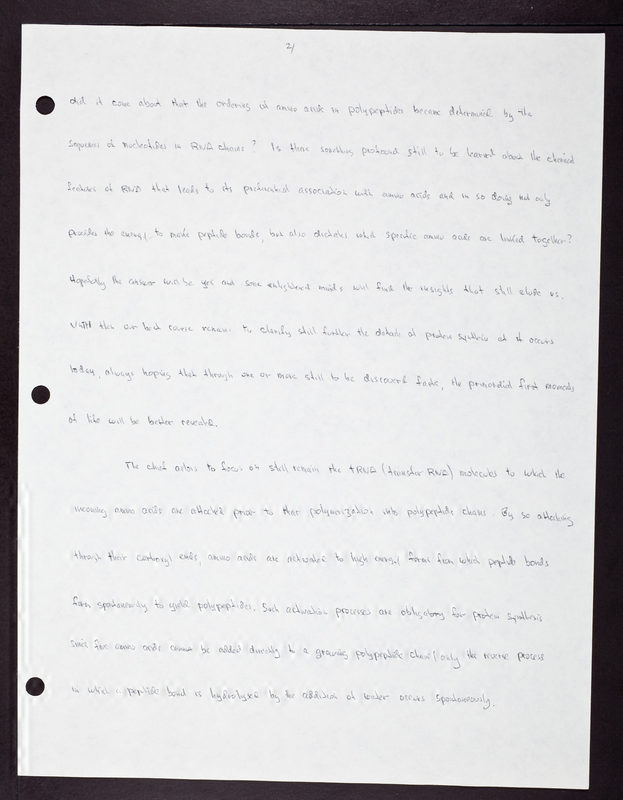 2/
did it come about that the ordering of amino acids in polypeptides became determined by the
sequences of nucleotides in RNA chains? Is there something profound still to be learned about the chemical
features of RNA that leads to its preferential association with amino acids and in so doing not only
provides the energy to make peptide bonds, but also dictates which specific amino acids are linked together?
Hopefully the answer will be yes and some enlightened minds will find the insights that still elude us.
Until then our best course remains to clarify still further the details of protein synthesis as it occurs
today, always hoping that through one or more still to be discovered facts, the primordial first moments
of life will be better revealed.
The chief actors to focus on still remain the tRNA (transfer RNA) molecules to which the
incoming amino acids are attached prior to their polymerization into polypeptide chains. By so attaching
through their carboxyl ends, amino acids are activated to high energy forms from which peptide bonds
form spontaneously to yield polypeptides. Such activation processes are obligatory for protein synthesis
since free amino acids cannot be added directly to a growing polypeptide chain; only the reverse process
in which a peptide bond is hydrolysed by the addition of water occurs spontaneously.